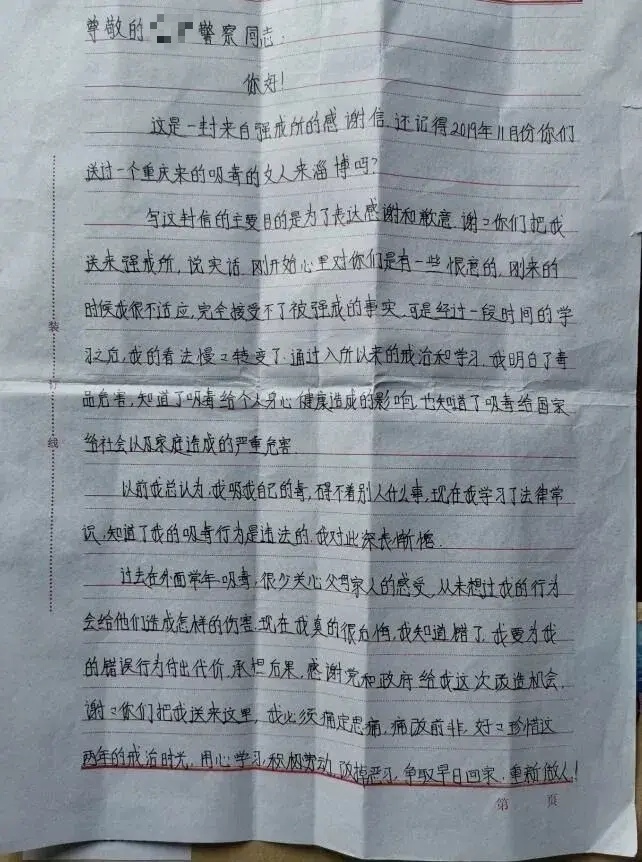 尊敬的 警察同志:
你好!
这是一封来自强戒所的感谢信.还记得2019年11月份你们
送过一个重庆来的吸毒的女人来淄博吗?
写这封信的主要目的是为了表达感谢和歉意.谢々你们把我
送来强戒所,说实话.刚开始心里对你们是有一些恨意的.刚来的
时候我很不适应,完全接受不了被强戒的事实.可是经过一段时间的学
习之后,我的看法慢々转变了.通过入所以来的戒治和学习.我明白了毒
品危害,知道了吸毒给个人身心健康造成的影响.也知道了吸毒给国家
给社会以及家庭造成的严重危害.
以前我总认为.我吸我自己的毒,碍不着别人什么事,现在我学习了法律常
识.知道了我的吸毒行为是违法的.我对此深表惭愧.
过去在外面常年吸毒,很少关心父母家人的感受.从未想过我的行为
会给他们造成怎样的伤害.现在我真的很后悔,我知道错了.我要为我
的错误行为付出代价,承担后果,感谢党和政府给我这次改造机会.
谢々你们把我送来这里,我必须痛定思痛,痛改前非,好々珍惜这
两年的戒治时光,用心学习,积极劳动,改掉恶习,争取早日回家,重新做人!
装
订
线
第 页